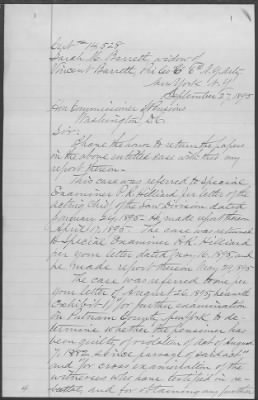 1
Sarah M. Barrett, widow of
Vincent Barrett,
New York N.Y.
September 2d 1895
Hon Commissioner of Pensions
Washington D.C.
Sir:
I have the honor to return the papers
in the above entitled case with my
report thereon.
This case was referred to Special
Examiner in letter of the
acting Chief of the Law Division dated
January 26, 1895. He made report thereon
April 17, 1895. The case was returned
to Special Examiner
per your letter dated May 16, 1895, and
he made report thereon May 29, 1895
The case was referred to me per
your letter of August 26, 1895, herewith
for further examination
in Putnam County, New York to de-
termine whether the pensioner has
been guilty of violation of Act of August
7, 1882, since passage of said act
and "for cross examination of the
witnesses who have testified in re-
buttal, and for obtaining any further